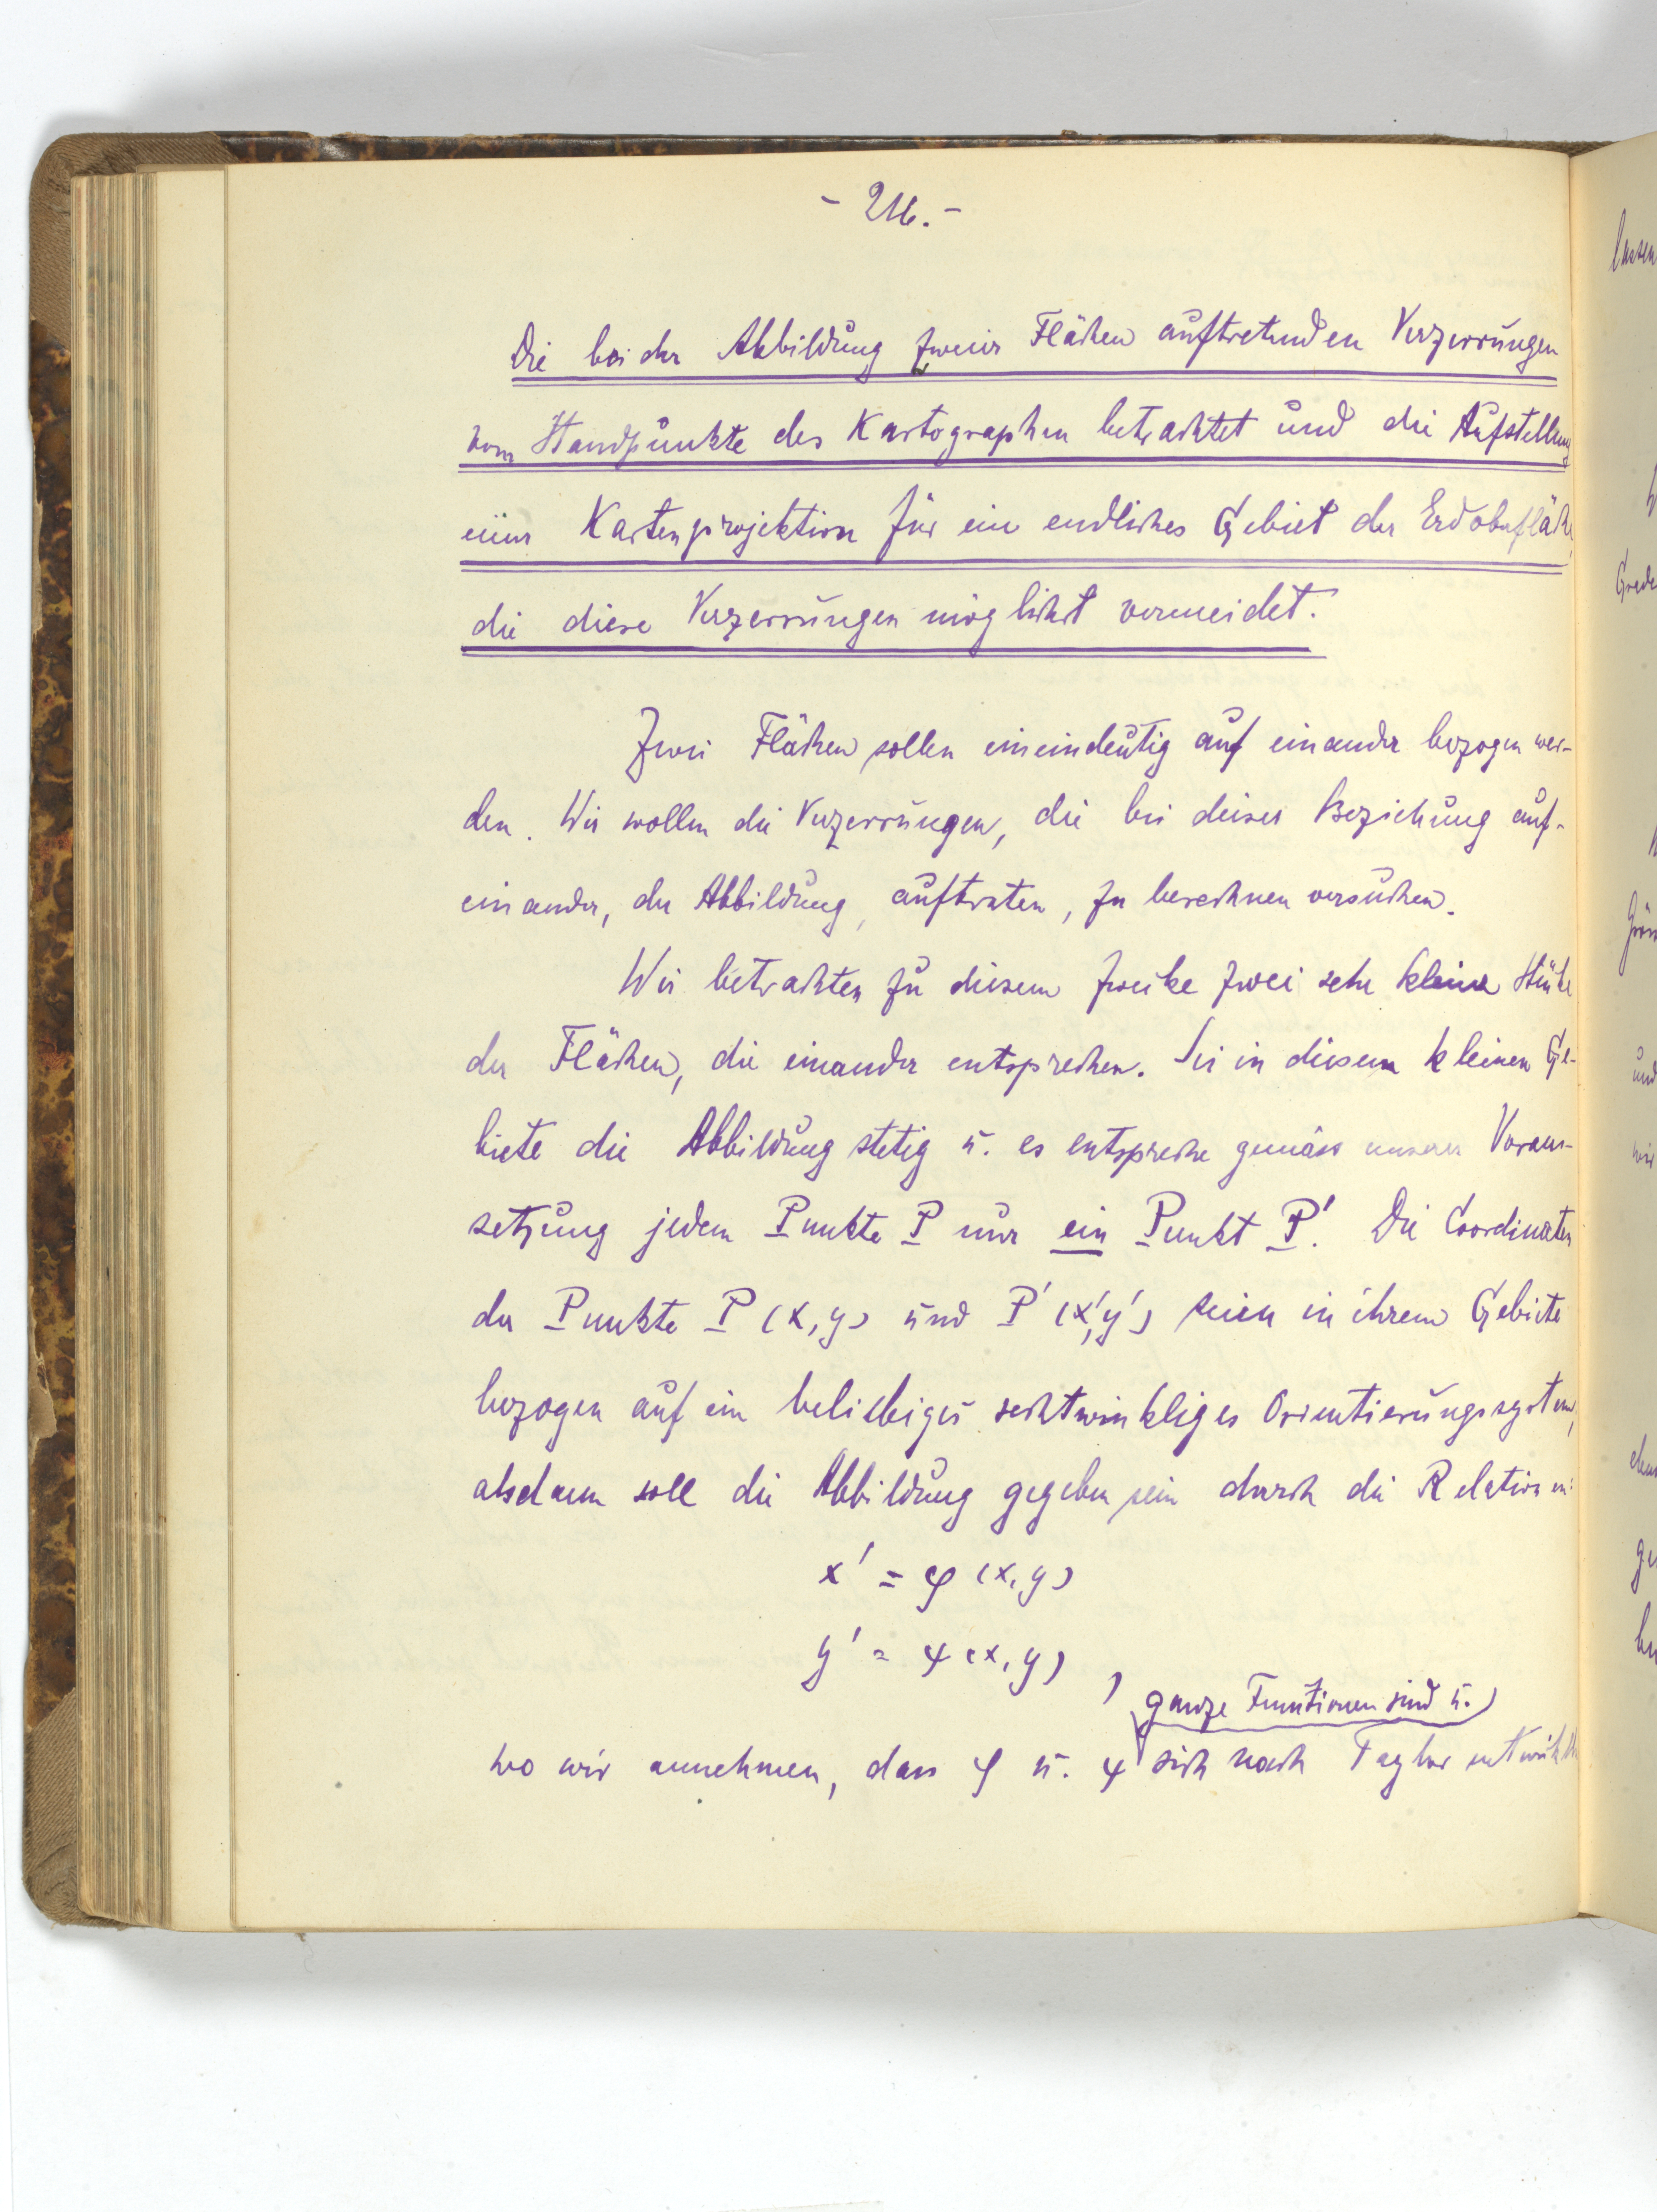 - 216. -
Die bei der Abbildung zweier Flächen auftretenden Verzerrungen
vom Standpunkte des Kartographen betrachtet und die Aufstellung
einer Kartenprojektion für ein endliches Gebiet der Erdoberfläche,
die diese Verzerrungen möglichst vermeidet.
Zwei Flächen sollen eineindeutig auf einander bezogen wer-
den. Wir wollen die Verzerrungen, die bei dieser Beziehung auf-
einander, der Abbildung, auftreten, zu berechnen versuchen.
Wir betrachten zu diesem Zwecke zwei sehr kleine Stücke
der Flächen, die einander entsprechen. Sei in diesem kleinen Ge-
biete die Abbildung stetig u. es entspreche gemäss unserer Voraus-
setzung jedem Punkte P nur ein Punkt P'. Die Coordinaten
der Punkte P (x, y) und P' (x', y') seien in ihrem Gebiete
bezogen auf ein beliebiges rechtwinkliges Orientierungssystem,
alsdann soll die Abbildung gegeben sein durch die Relationen:
x' = φ (x, y)
y' = ψ (x, y) ,
ganze Funktionen sind u.
wo wir annehmen, dass φ u. ψ sich nach Taylor entwickeln
lassen
Grade
und
wir